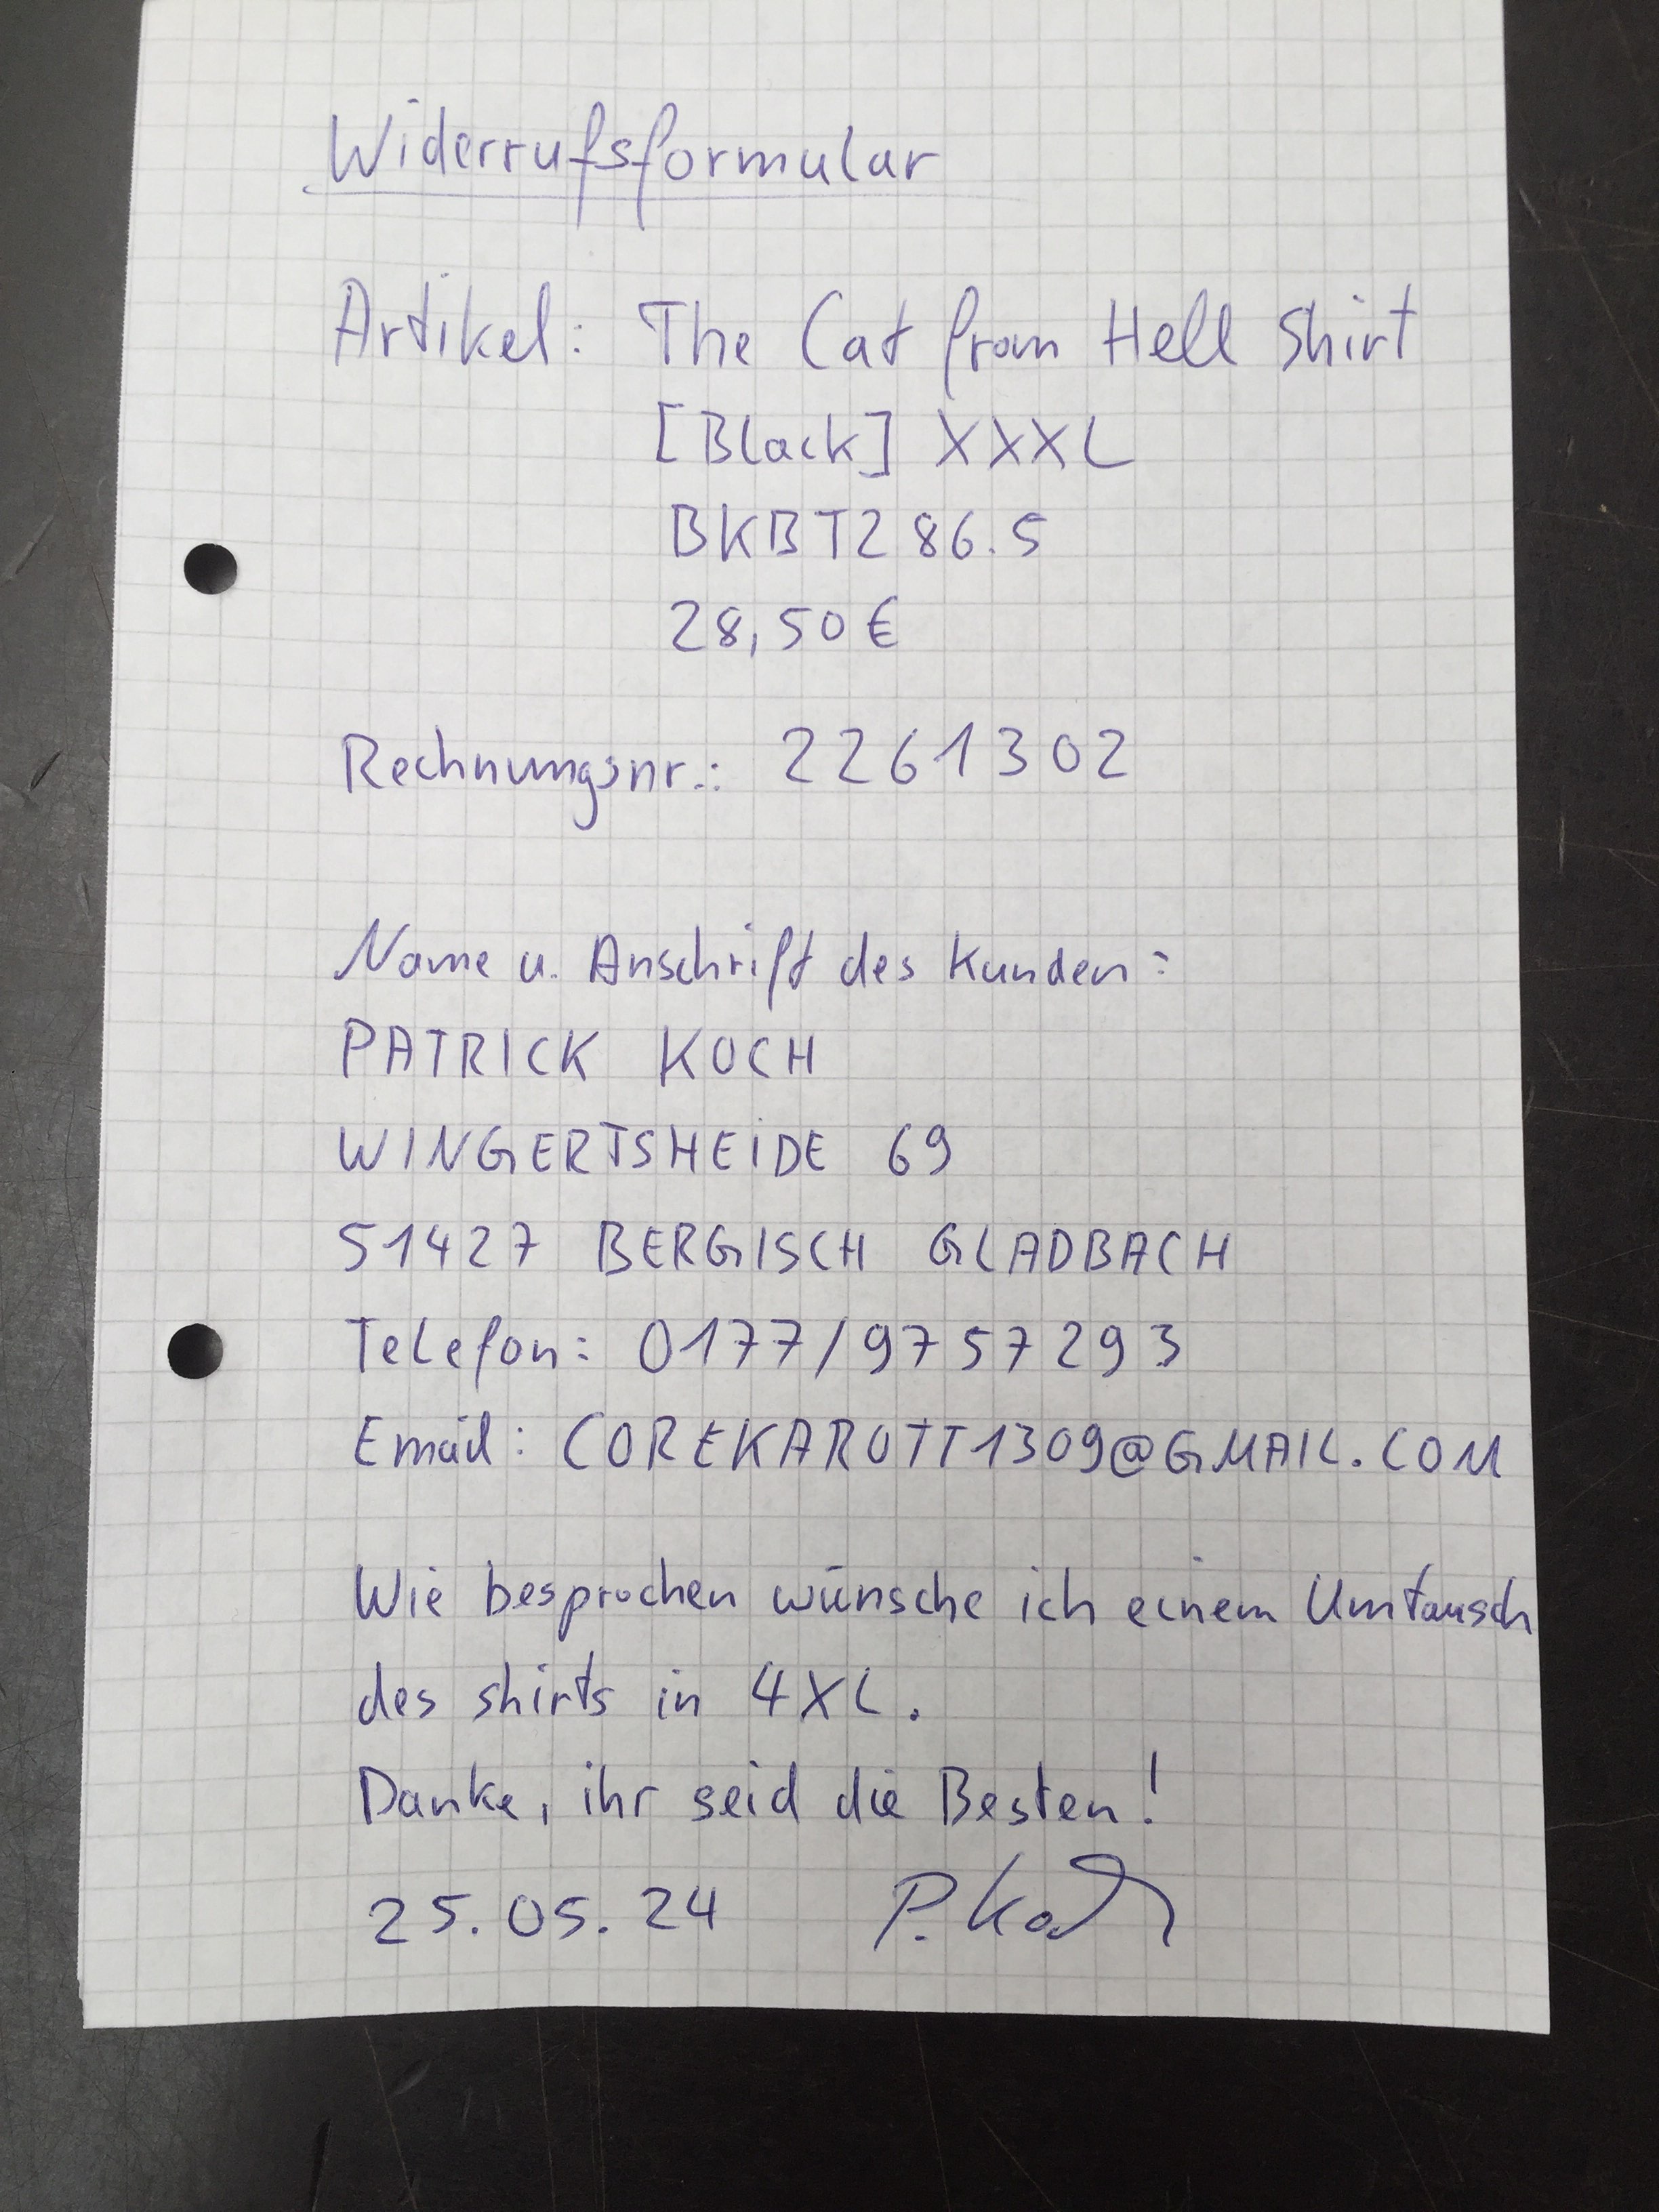 Widerrufsformular
Artikel: The Cat from Hell Shirt
[Black] XXXL
BKBT286.5
28,50€
Rechnungsnr.: 2261302
Name u. Anschrift des Kunden:
PATRICK KOCH
WINGERTSHEIDE 69
51427 BERGISCH GLADBACH
Telefon: 0177/9757293
Email: COREKAROTT1309@GMAIL.COM
Wie besprochen wünsche ich einem Umtausch
des shirts in 4XL.
Danke, ihr seid die Besten!
25.05.24 P. Koch